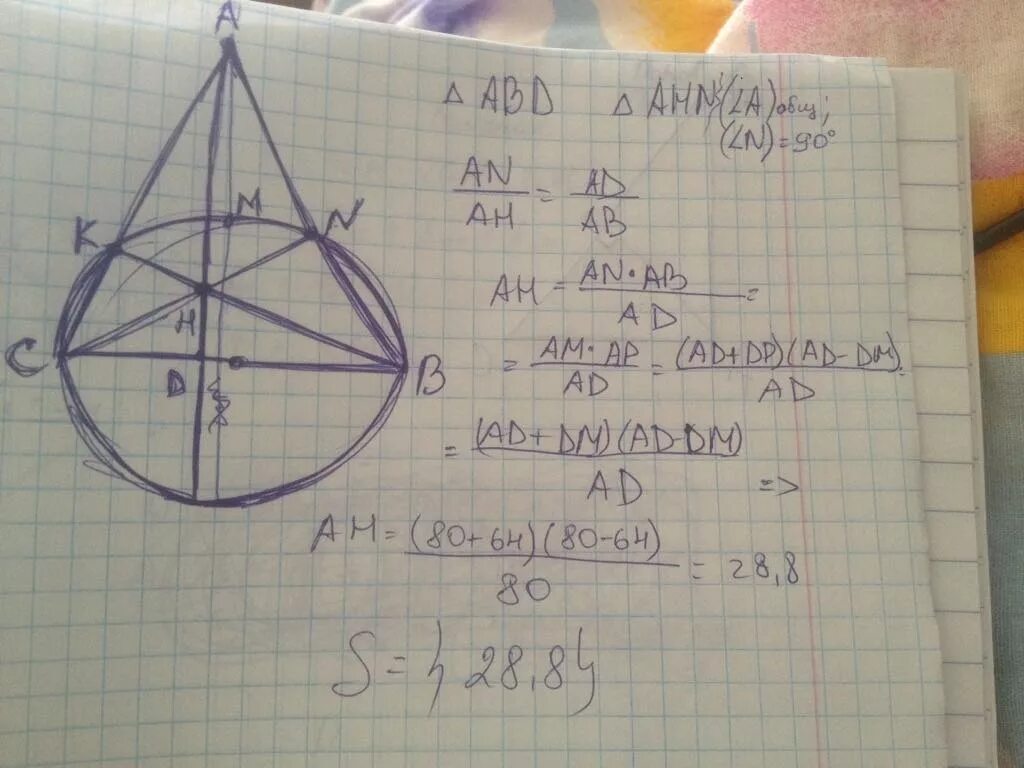 A
K
M
N
H
C
D
B
△ ABD △ AHN (∠A) общ;
(∠N) = 90°
AN/AH = AD/AB
AH = AN·AB/AD =
= AM·AP/AD = (AD+DP)(AD-DM)/AD =
= (AD+DM)(AD-DM)/AD =>
AH = (80+64)(80-64)/80 = 28,8
S = { 28,8 }